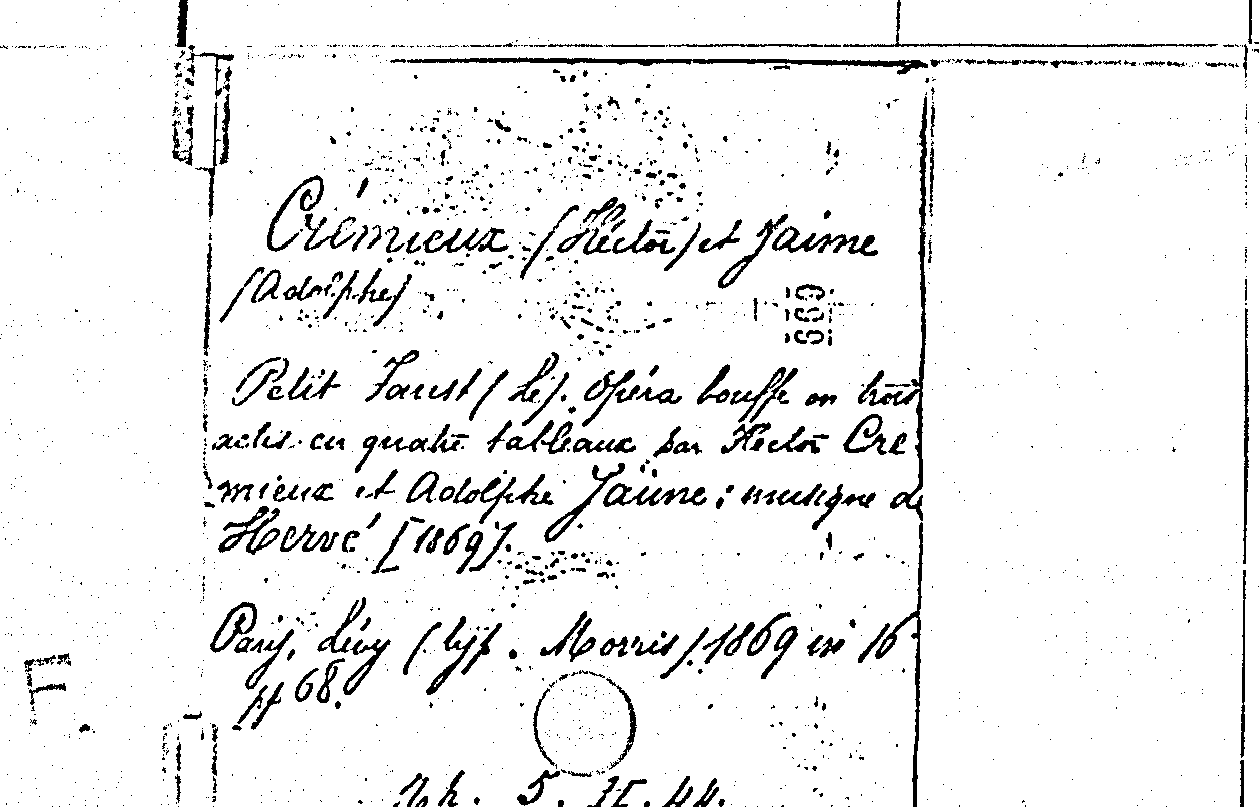 Crémieux (Hector) et Jaime
(Adolphe)
669
Petit Faust (Le). Opéra bouffe en trois
actes en quatre tableaux par Hector Cré-
mieux et Adolphe Jaime ; musique de
Hervé [1869].
Paris, Lévy (typ. Morris) 1869 in 16°
pp 68.
F.
5. II. 44.